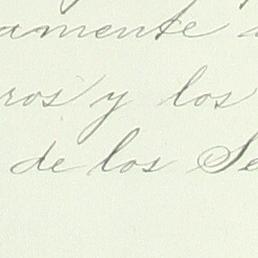 amente
ros y los
de los Se